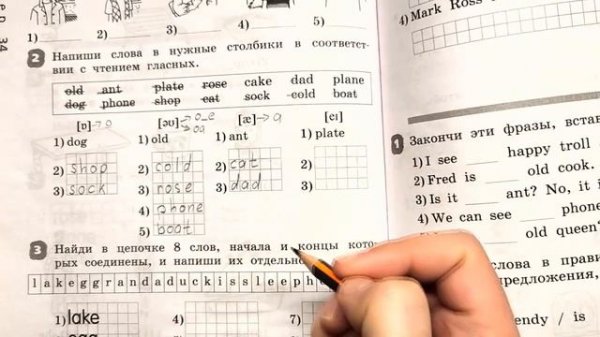 1) 2) 3) 4) 5)
2 Напиши слова в нужные столбики в соответст-
вии с чтением гласных.
old ant plate rose cake dad plane
dog phone shop cat sock cold boat
[ɒ]→o [əʊ]→o_e oa [æ]→a [eɪ]
1) dog 1) old 1) ant 1) plate
2) shop 2) cold 2) cat 2)
3) sock 3) rose 3) dad 3)
4) phone
5) boat
3 Найди в цепочке 8 слов, начала и концы кото-
рых соединены, и напиши их отдельно
lakeggrandaduckissleeph
1) lake 4) 7)
4) Mark Ross
1 Закончи эти фразы, встав
1) I see happy troll
2) Fred is old cook.
3) Is it ant? No, it i
4) We can see phone
old queen?
слова в прави
предложения,
endy / is